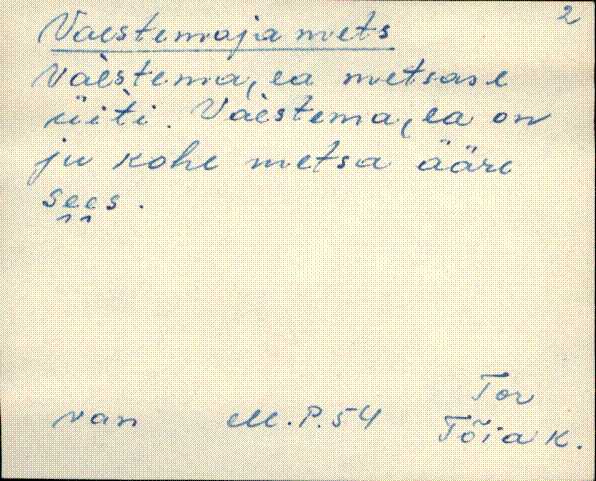 2
Vaestemaja mets
Vaèstema,ea metsast
üiti. Vaèstema,ea on
ju kohe metsa ääre
sees.
van M.P.54 Tor
Tõia K.